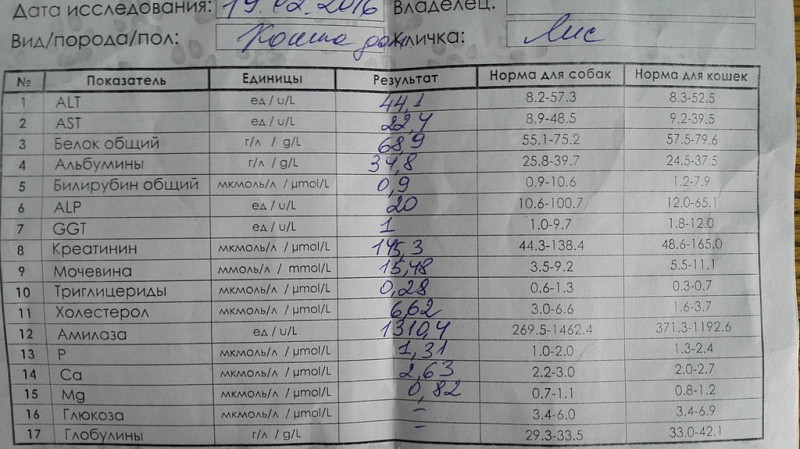 Дата исследования: 19.02.2016 Владелец:
Вид/порода/пол: Кошка дом Кличка: Лис
№ Показатель Единицы Результат Норма для собак Норма для кошек
1 ALT ед / u/L 44,1 8.2-57.3 8.3-52.5
2 AST ед / u/L 22,4 8.9-48.5 9.2-39.5
3 Белок общий г/л / g/L 68,9 55.1-75.2 57.5-79.6
4 Альбумины г/л / g/L 34,8 25.8-39.7 24.5-37.5
5 Билирубин общий мкмоль/л / µmol/L 0,9 0.9-10.6 1.2-7.9
6 ALP ед / u/L 20 10.6-100.7 12.0-65.1
7 GGT ед / u/L 1 1.0-9.7 1.8-12.0
8 Креатинин мкмоль/л / µmol/L 145,3 44.3-138.4 48.6-165.0
9 Мочевина ммоль/л / mmol/L 15,48 3.5-9.2 5.5-11.1
10 Триглицериды мкмоль/л / µmol/L 0,28 0.6-1.3 0.3-0.7
11 Холестерол мкмоль/л / µmol/L 6,62 3.0-6.6 1.6-3.7
12 Амилаза ед / u/L 1310,4 269.5-1462.4 371.3-1192.6
13 P мкмоль/л / µmol/L 1,31 1.0-2.0 1.3-2.4
14 Ca мкмоль/л / µmol/L 2,63 2.2-3.0 2.0-2.7
15 Mg мкмоль/л / µmol/L 0,82 0.7-1.1 0.8-1.2
16 Глюкоза мкмоль/л / µmol/L – 3.4-6.0 3.4-6.9
17 Глобулины г/л / g/L – 29.3-33.5 33.0-42.1